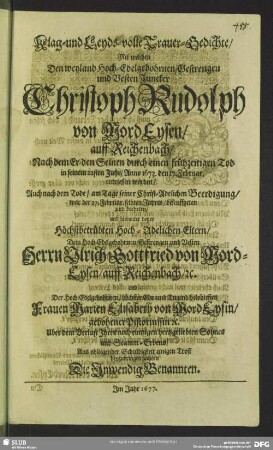 Klag- und Leyds-volle Trauer-Gedichte/
Mit welchen
Den weyland Hoch-Edelgebohrnen/Gestrengen
und Vesten Juncker
Christoph Rudolph
von Nord Eysen/
auff Reichenbach/
Nach dem Er den Seinen durch einen frühzeitigen Tod
in seinem Jahr/ Anno 1677. den 17. Februar.
entrissen worden/
Auch nach dem Tode/ am Tage seiner Christ-Adelichen Beerdigung/
war der 27. Februar. selbigen Jahres/
und
Höchstbetrübten Hoch-Adelichen Eltern/
Dem Hoch-Edelgebohrnen/Gestrengen und Vesten
Herrn Ulrich Gottfried von Nord-
Eysen/ auff Reichenbach/ &c.
und
Der Hoch-Edelgebohrnen/
Frauen Marien Elisabeth von Nord Eysin/
gebohrnen Pistoriussin &c.
Über dem Verlust Ihres noch einigen hertzgeliebten Sohnes
und Stamm-Erbens/
Aus obliegender Schuldigkeit einigen Trost
Die Inwendig Benannten.
Im Jahr 1677.
SLUB